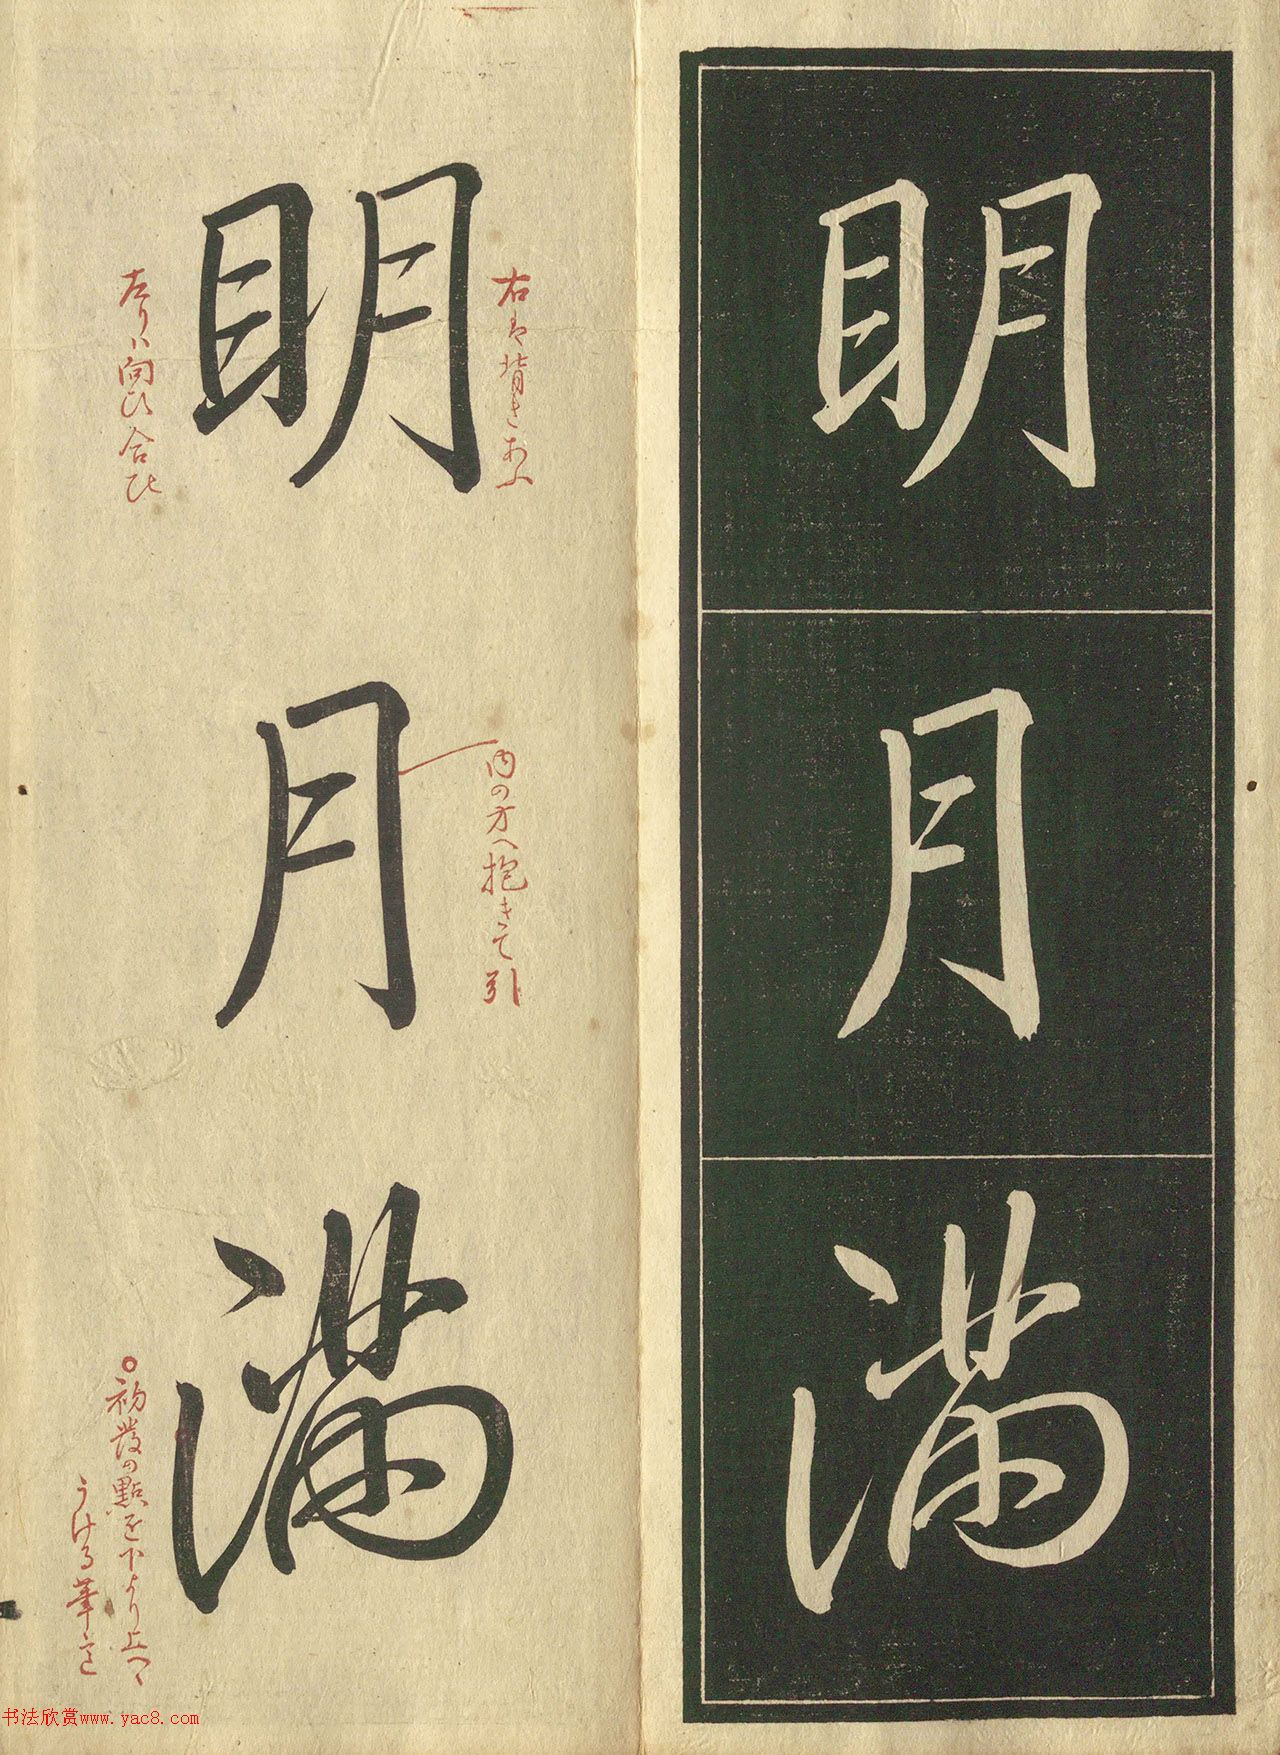 明月満
右は背きあふ
明月満
左りハ向ひ合ひ
内の方へ抱きて引
○初發の點を下より上へ
うける筆意
书法欣赏www.yac8.com